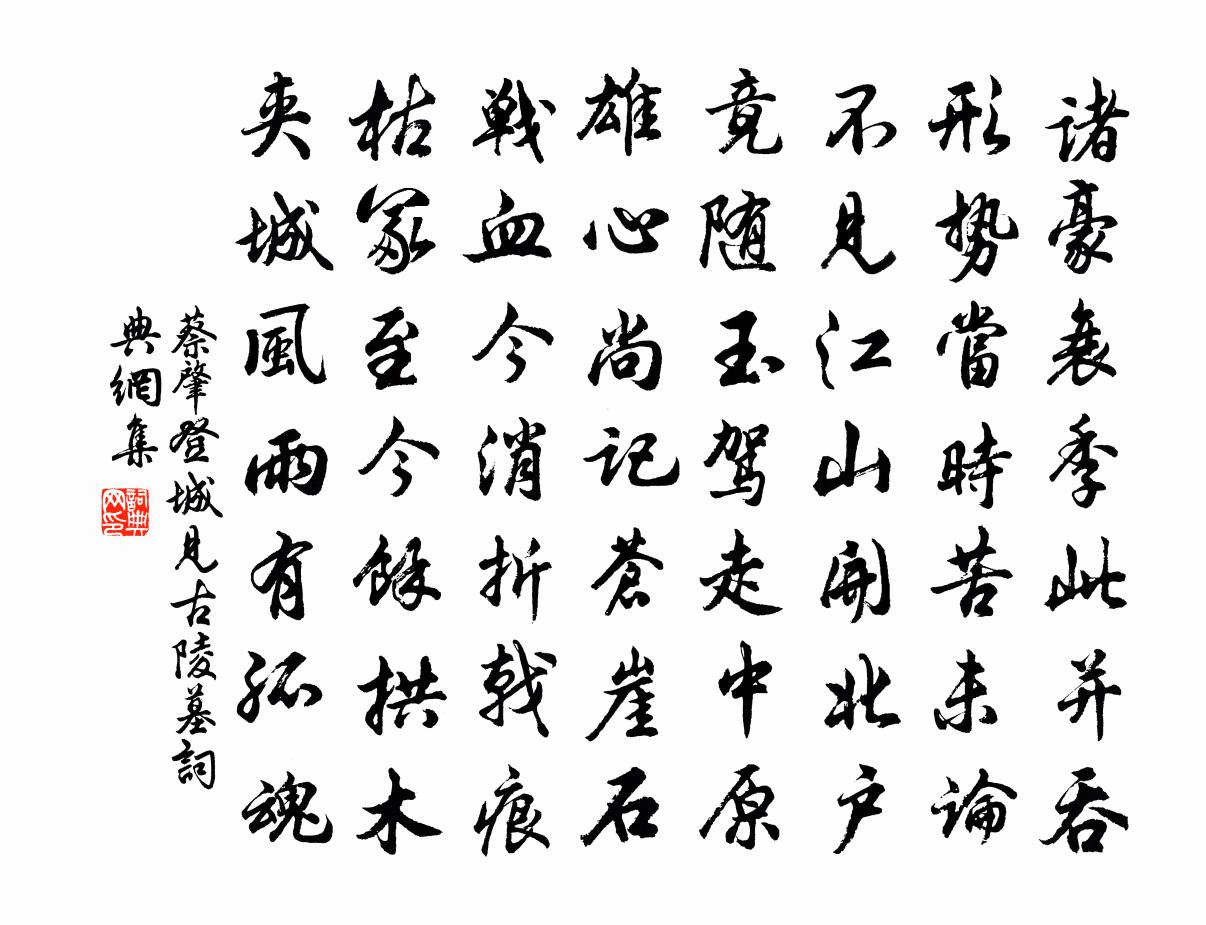 諸豪衰季此并吞
形勢當時苦未論
不見江山開北户
竟随玉駕走中原
雄心尚记蒼崖石
戰血今消折戟痕
枯冢至今餘拱木
夾城風雨有孤魂
蔡肇登城見古陵墓詞
典網集
詞典网印